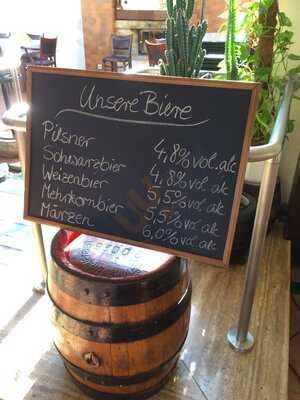 Unsere Biere
Pilsner 4,8% vol. alc
Schwarzbier 4,8% vol. alc
Weizenbier 5,5% vol. alc
Mehrkornbier 5,5% vol. alc
Märzen 6,0% vol. alc